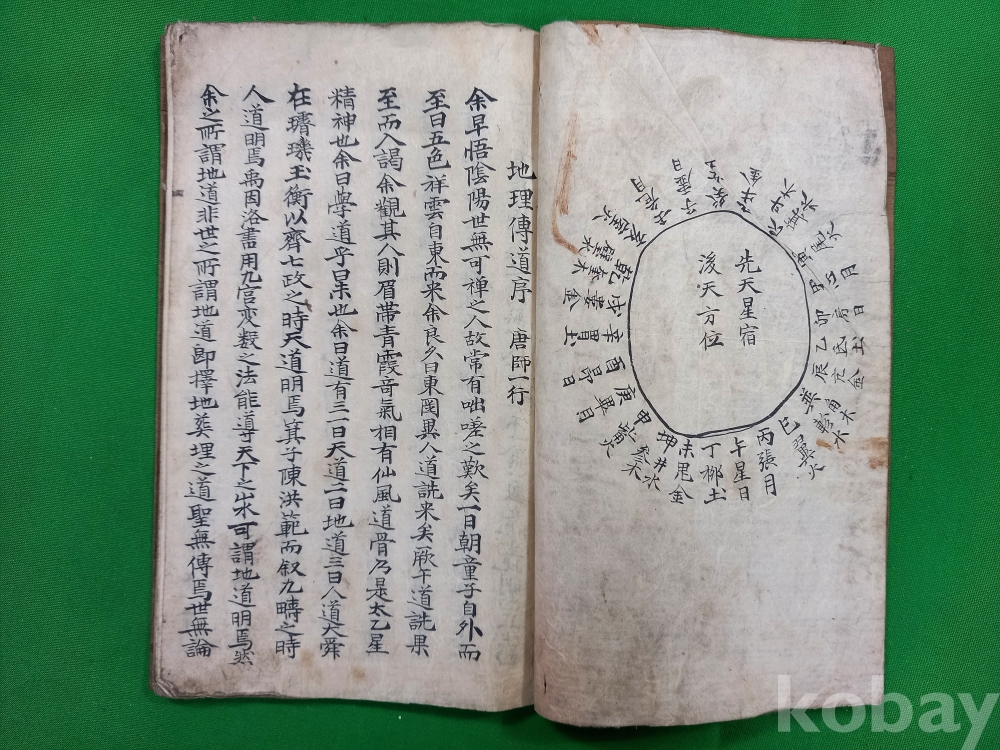 先天星宿
後天方位
子虛日
乾奎木
戌婁金
辛胃土
酉昴日
庚畢月
申觜火
未鬼金
丁柳土
午星日
丙張月
巳翼火
巽軫水
角木
辰亢金
乙氐土
卯房日
甲心月
寅尾火
地理傳道序 唐師一行
余早悟陰陽世無可禅之人故常有咄嗟之歎矣一日朝童子自外而
至曰五色祥雲自東而來余良久曰東國異人道詵來矣厥午道詵果
至而入謁余觀其人則眉帶青霞奇氣相有仙風道骨乃是太乙星
精神也余曰學道乎也余曰道有三一曰天道二曰地道三曰人道大舜
在璿璣玉衡以齊七政之時天道明焉箕子陳洪範而叙九疇之時
人道明焉禹因洛書用九宮変数之法能導天下之山水可謂地道明焉然
余之所謂地道非世之所謂地道即擇地葬埋之道聖無傳焉世無論
kobay